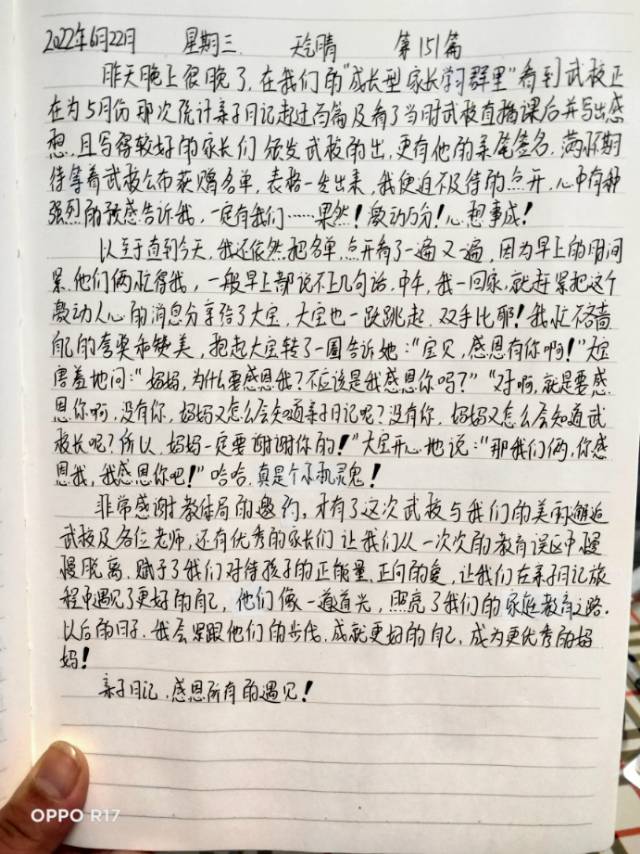 2022年6月22日 星期三 天气晴 第151篇
昨天晚上很晚了，在我们的"成长型家长学习群里"看到武校正
在为5月份那次统计亲子日记超过百篇及看了当时武校直播课后并写出感
想，且写得较好的家长们颁发武校的书，更有他的亲笔签名。满怀期
待等着武校公布获赠名单，表格一发出来，我便迫不及待的点开，心中有种
强烈的预感告诉我，一定有我们……果然！激动万分！心想事成！
以至于直到今天，我还依然把名单，点开看了一遍又一遍，因为早上的时间
紧，他们俩忙得我，一般早上都说不上几句话，中午，我一回家，就赶紧把这个
激动人心的消息分享给了大宝，大宝也一跃跳起，双手比耶！我忙不吝啬
自己的夸奖和赞美，抱起大宝转了一圈告诉她："宝贝，感恩有你啊！"大宝
害羞地问："妈妈，为什么要感恩我？不应该是我感恩你吗？""对啊，就是要感
恩你啊，没有你，妈妈又怎么会知道亲子日记呢？没有你，妈妈又怎么会知道武
校长呢？所以，妈妈一定要谢谢你的！"大宝开心地说："那我们俩，你感
恩我，我感恩你吧！"哈哈，真是个小机灵鬼！
非常感谢教体局的邀约，才有了这次武校与我们的美丽邂逅
武校及各位老师，还有优秀的家长们让我们从一次次的教育误区中慢
慢脱离，赋予了我们对待孩子的正能量，正向的爱，让我们在亲子日记旅
程中遇见了更好的自己，他们像一道道光，照亮了我们的家庭教育之路。
以后的日子，我会紧跟他们的步伐，成就更好的自己，成为更优秀的妈
妈！
亲子日记，感恩所有的遇见！
OPPO R17